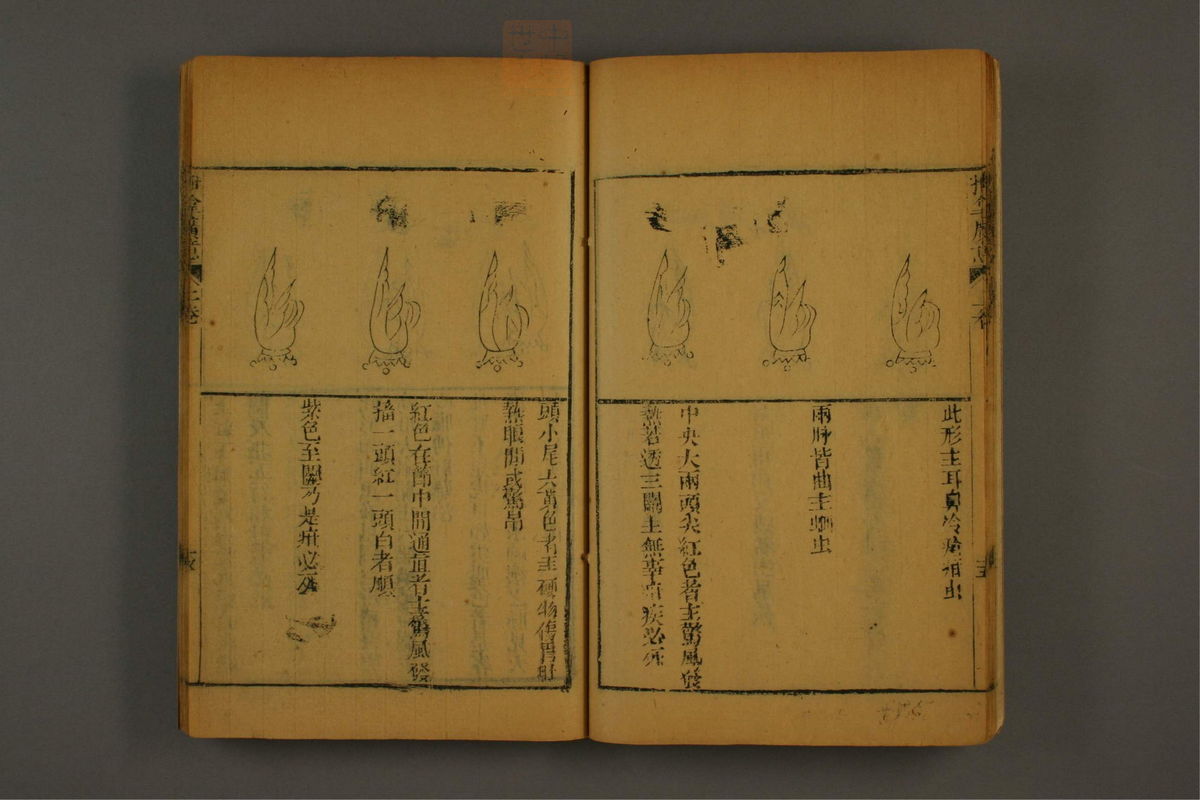 此形主耳鼻冷疳疽虫
兩脉皆曲主蛔虫
中央大兩頭尖紅色者主驚風發
熱若透三關主無辜疳疾必死
頭小尾大黃色者主硬物傷胃肚
熱眼閉或驚吊
紅色在節中間通直者主驚風發
搐一頭紅一頭白者壓
紫色至關乃是疳必死